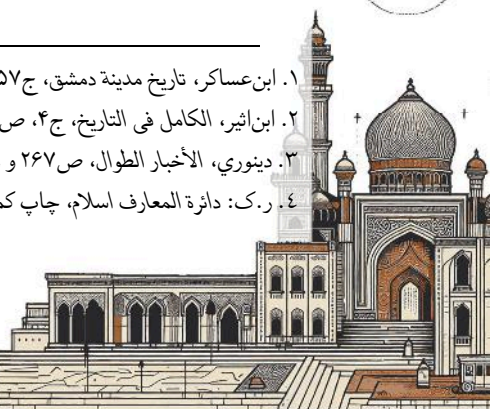 ١. ابن‌عساکر، تاریخ مدینة دمشق، ج۵۷
۲. ابن‌اثیر، الکامل فی التاریخ، ج۴، ص
۳. دینوري، الأخبار الطوال، ص۲۶۷ و
٤. ر.ک: دائرة المعارف اسلام، چاپ